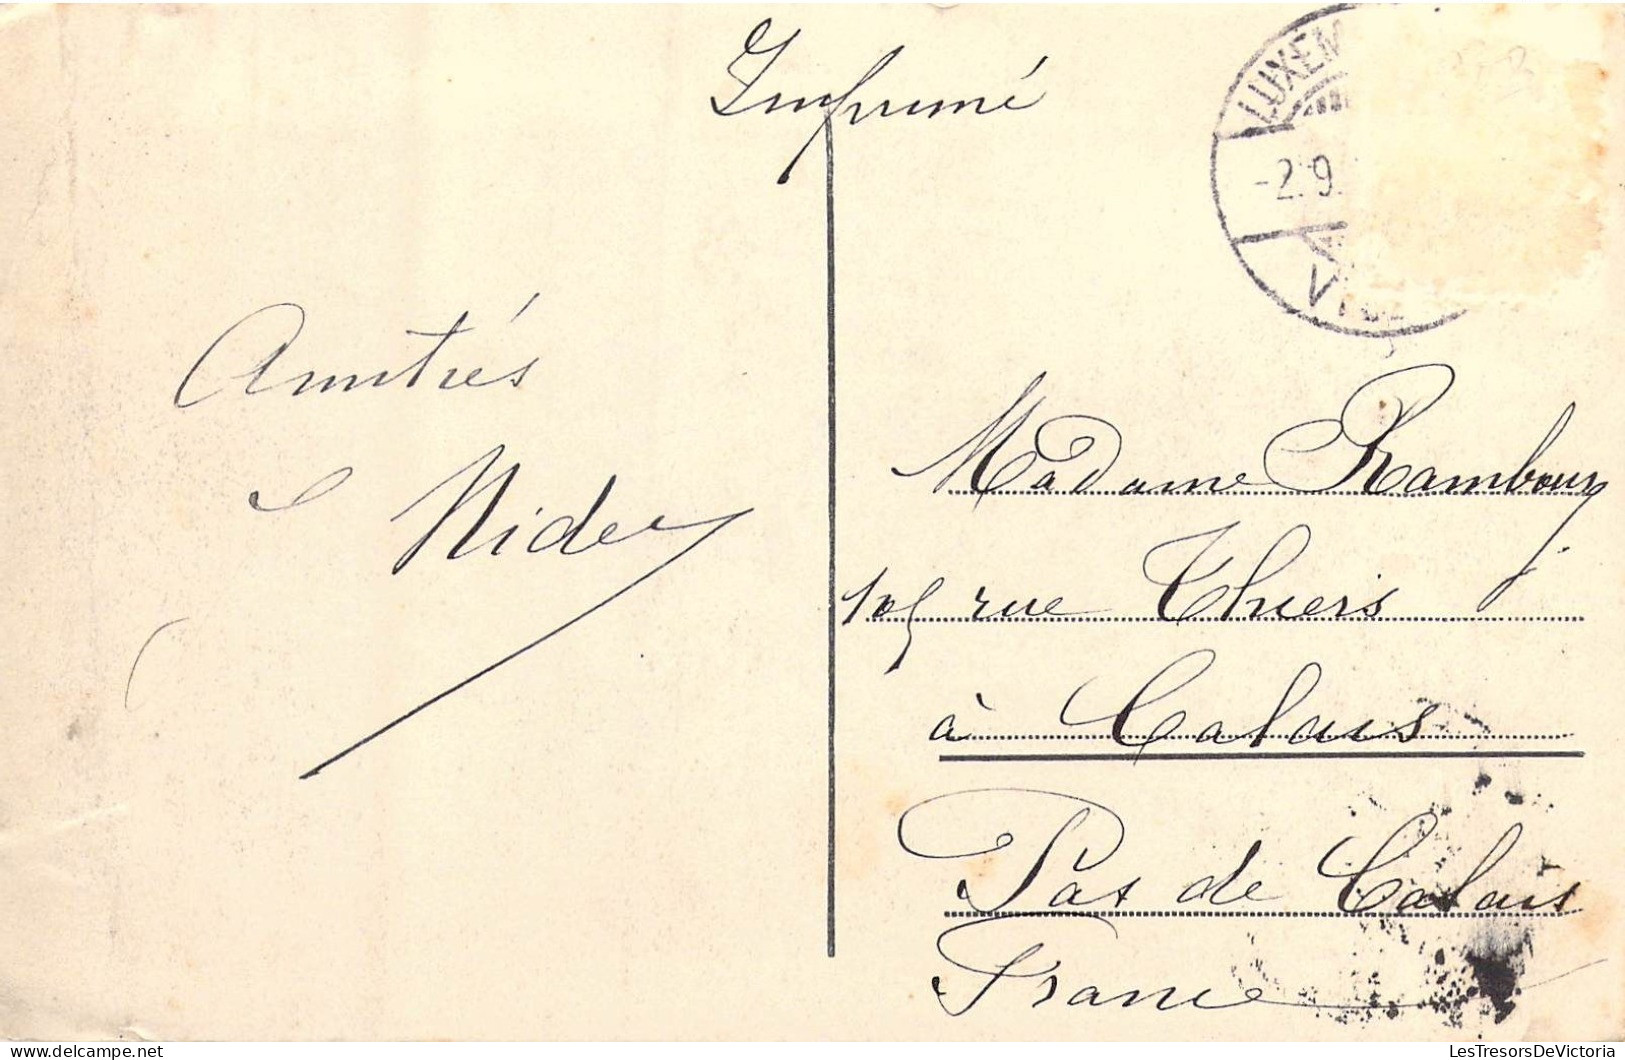 Imprimé
LUXEM
-2.9.
VILL
Amitiés
Nider
Madame Rambour
105 rue Thiers
à Calais
Pas de Calais
France
LesTresorsDeVictoria
delcampe.net